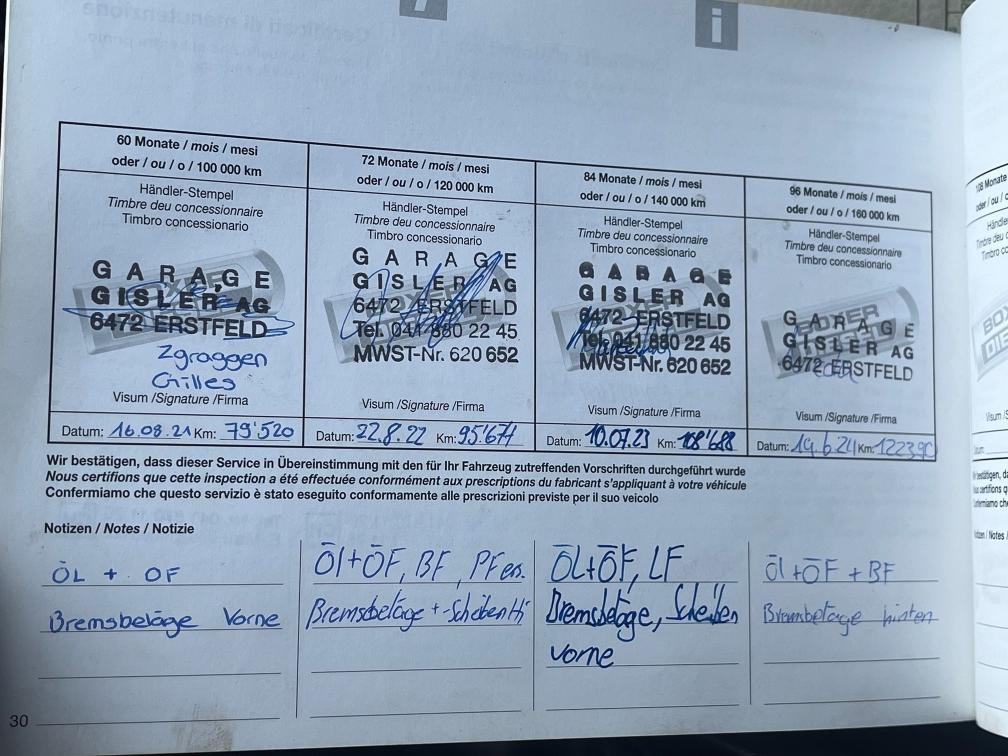 i
60 Monate / mois / mesi
oder / ou / o / 100 000 km
Händler-Stempel
Timbre du concessionnaire
Timbro concessionario
GARAGE
GISLER AG
6472 ERSTFELD
Zgraggen
Gilles
Visum /Signature /Firma
Datum: 16.08.21 Km: 79'520
72 Monate / mois / mesi
oder / ou / o / 120 000 km
Händler-Stempel
Timbre deu concessionnaire
Timbro concessionario
GARAGE
GISLER AG
6472 ERSTFELD
Tel. 041 880 22 45
MWST-Nr. 620 652
Visum /Signature /Firma
Datum: 22.8.22 Km: 95'674
84 Monate / mois / mesi
oder / ou / o / 140 000 km
Händler-Stempel
Timbre deu concessionnaire
Timbro concessionario
GARAGE
GISLER AG
6472 ERSTFELD
Tel. 041 880 22 45
MWST-Nr. 620 652
Visum /Signature /Firma
Datum: 10.07.23 Km: 108'688
96 Monate / mois / mesi
oder / ou / o / 160 000 km
Händler-Stempel
Timbre deu concessionnaire
Timbro concessionario
GARAGE
GISLER AG
6472 ERSTFELD
Visum /Signature /Firma
Datum: 14.6.24 Km: 122390
Wir bestätigen, dass dieser Service in Übereinstimmung mit den für Ihr Fahrzeug zutreffenden Vorschriften durchgeführt wurde
Nous certifions que cette inspection a été effectuée conformément aux prescriptions du fabricant s'appliquant à votre véhicule
Confermiamo che questo servizio è stato eseguito conformamente alle prescrizioni previste per il suo veicolo
Notizen / Notes / Notizie
ÖL + OF
Bremsbeläge Vorne
Öl+ÖF, BF, PF ers.
Bremsbeläge + -Scheiben Hi
ÖL+ÖF, LF
Bremsbeläge, Scheiben
vorne
Öl+ÖF + BF
Bremsbeläge hinten
30